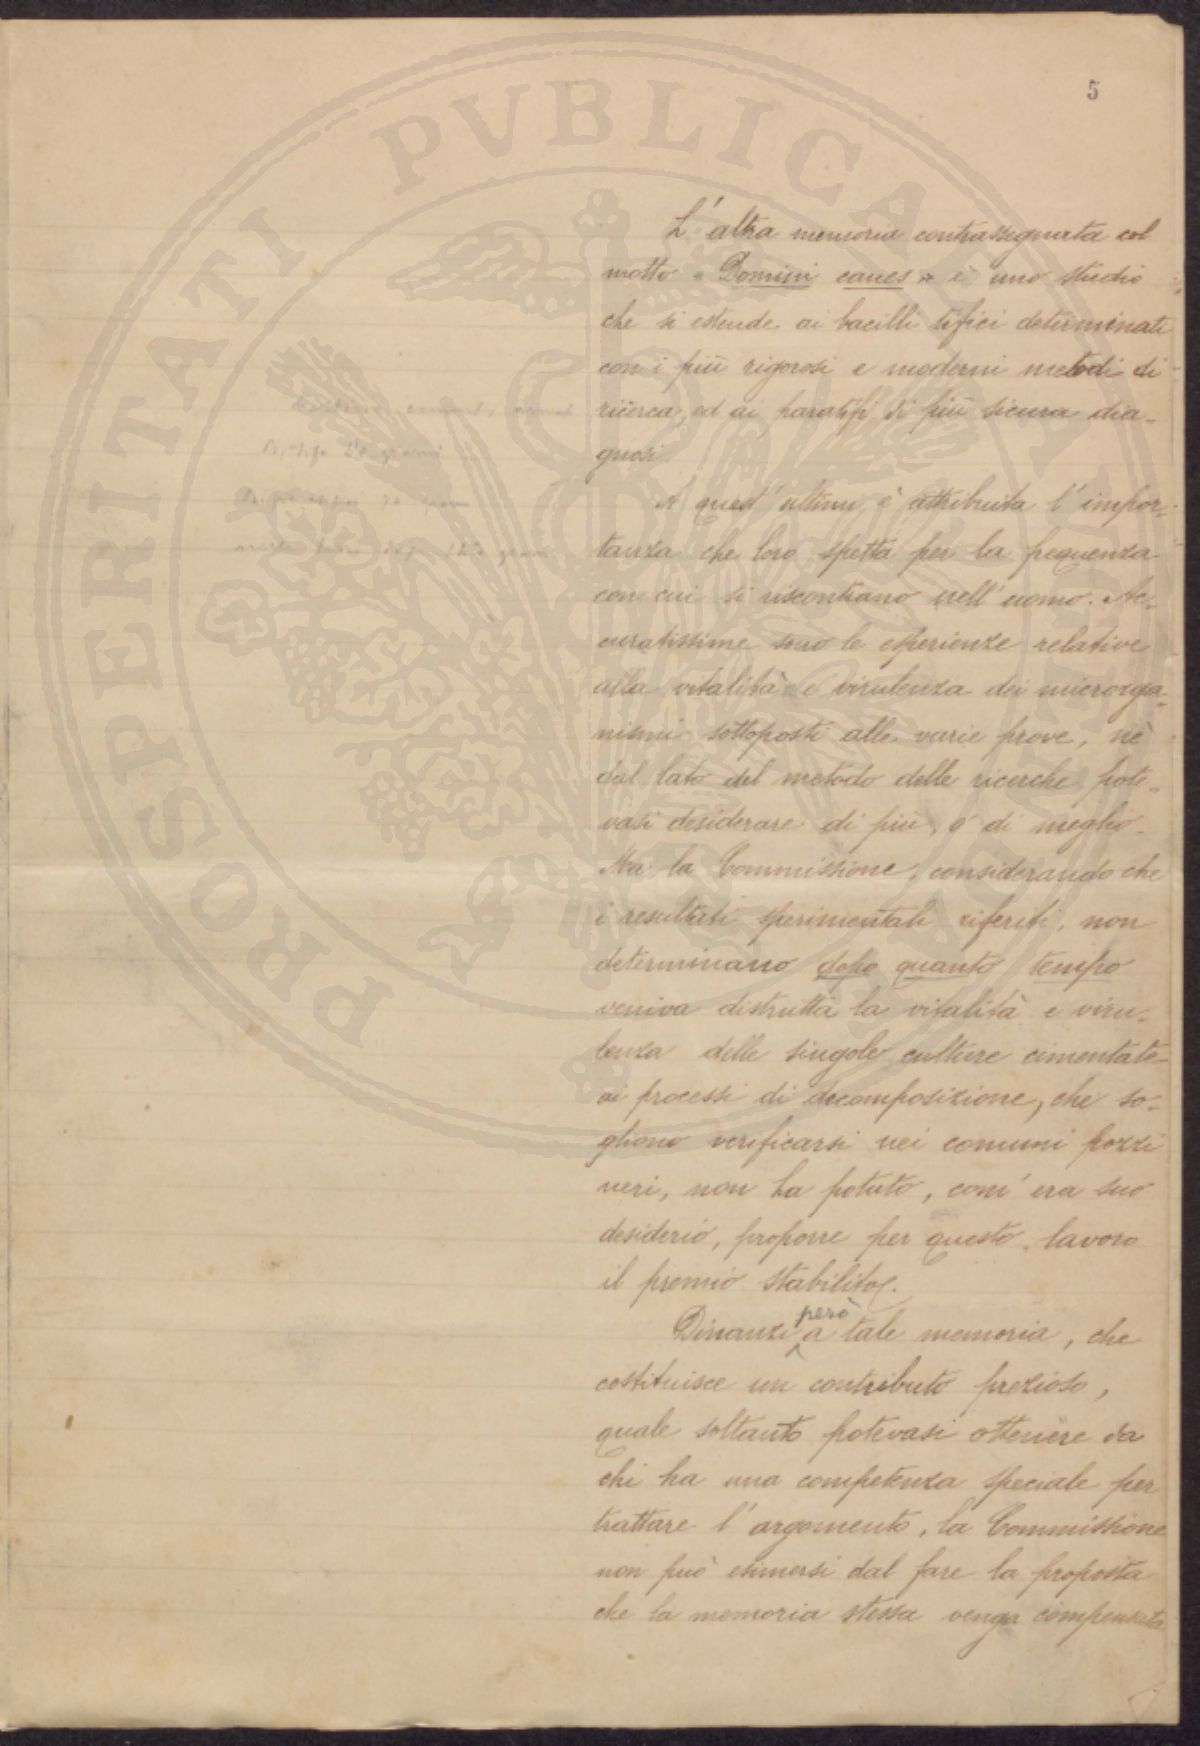 PROSPERITATI PVBLICAE
5
L'altra memoria contrassegnata col
motto « Domini canes » è uno studio
che si estende ai bacilli tifici determinati
con i più rigorosi e moderni metodi di
ricerca, ed ai paratifi di più sicura dia-
gnosi
A quest'ultimi è attribuita l'impor-
tanza che loro spetta per la frequenza
con cui si riscontrano nell'uomo. Ac-
curatissime sono le esperienze relative
alla vitalità e virulenza dei microrga-
nismi sottoposti alle varie prove, nè
dal lato del metodo delle ricerche pote-
vasi desiderare di più, o di meglio.
Ma la Commissione, considerando che
i resultati sperimentali riferiti, non
determinano dopo quanto tempo
veniva distrutta la vitalità e viru-
lenza delle singole culture cimentate
ai processi di decomposizione, che so-
gliono verificarsi nei comuni pozzi
neri, non ha potuto, com'era suo
desiderio, proporre per questo lavoro
il premio stabilito.
Dinanzi però a tale memoria, che
costituisce un contributo prezioso,
quale soltanto potevasi ottenere da
chi ha una competenza speciale per
trattare l'argomento, la Commissione
non può esimersi dal fare la proposta
che la memoria stessa venga compensata